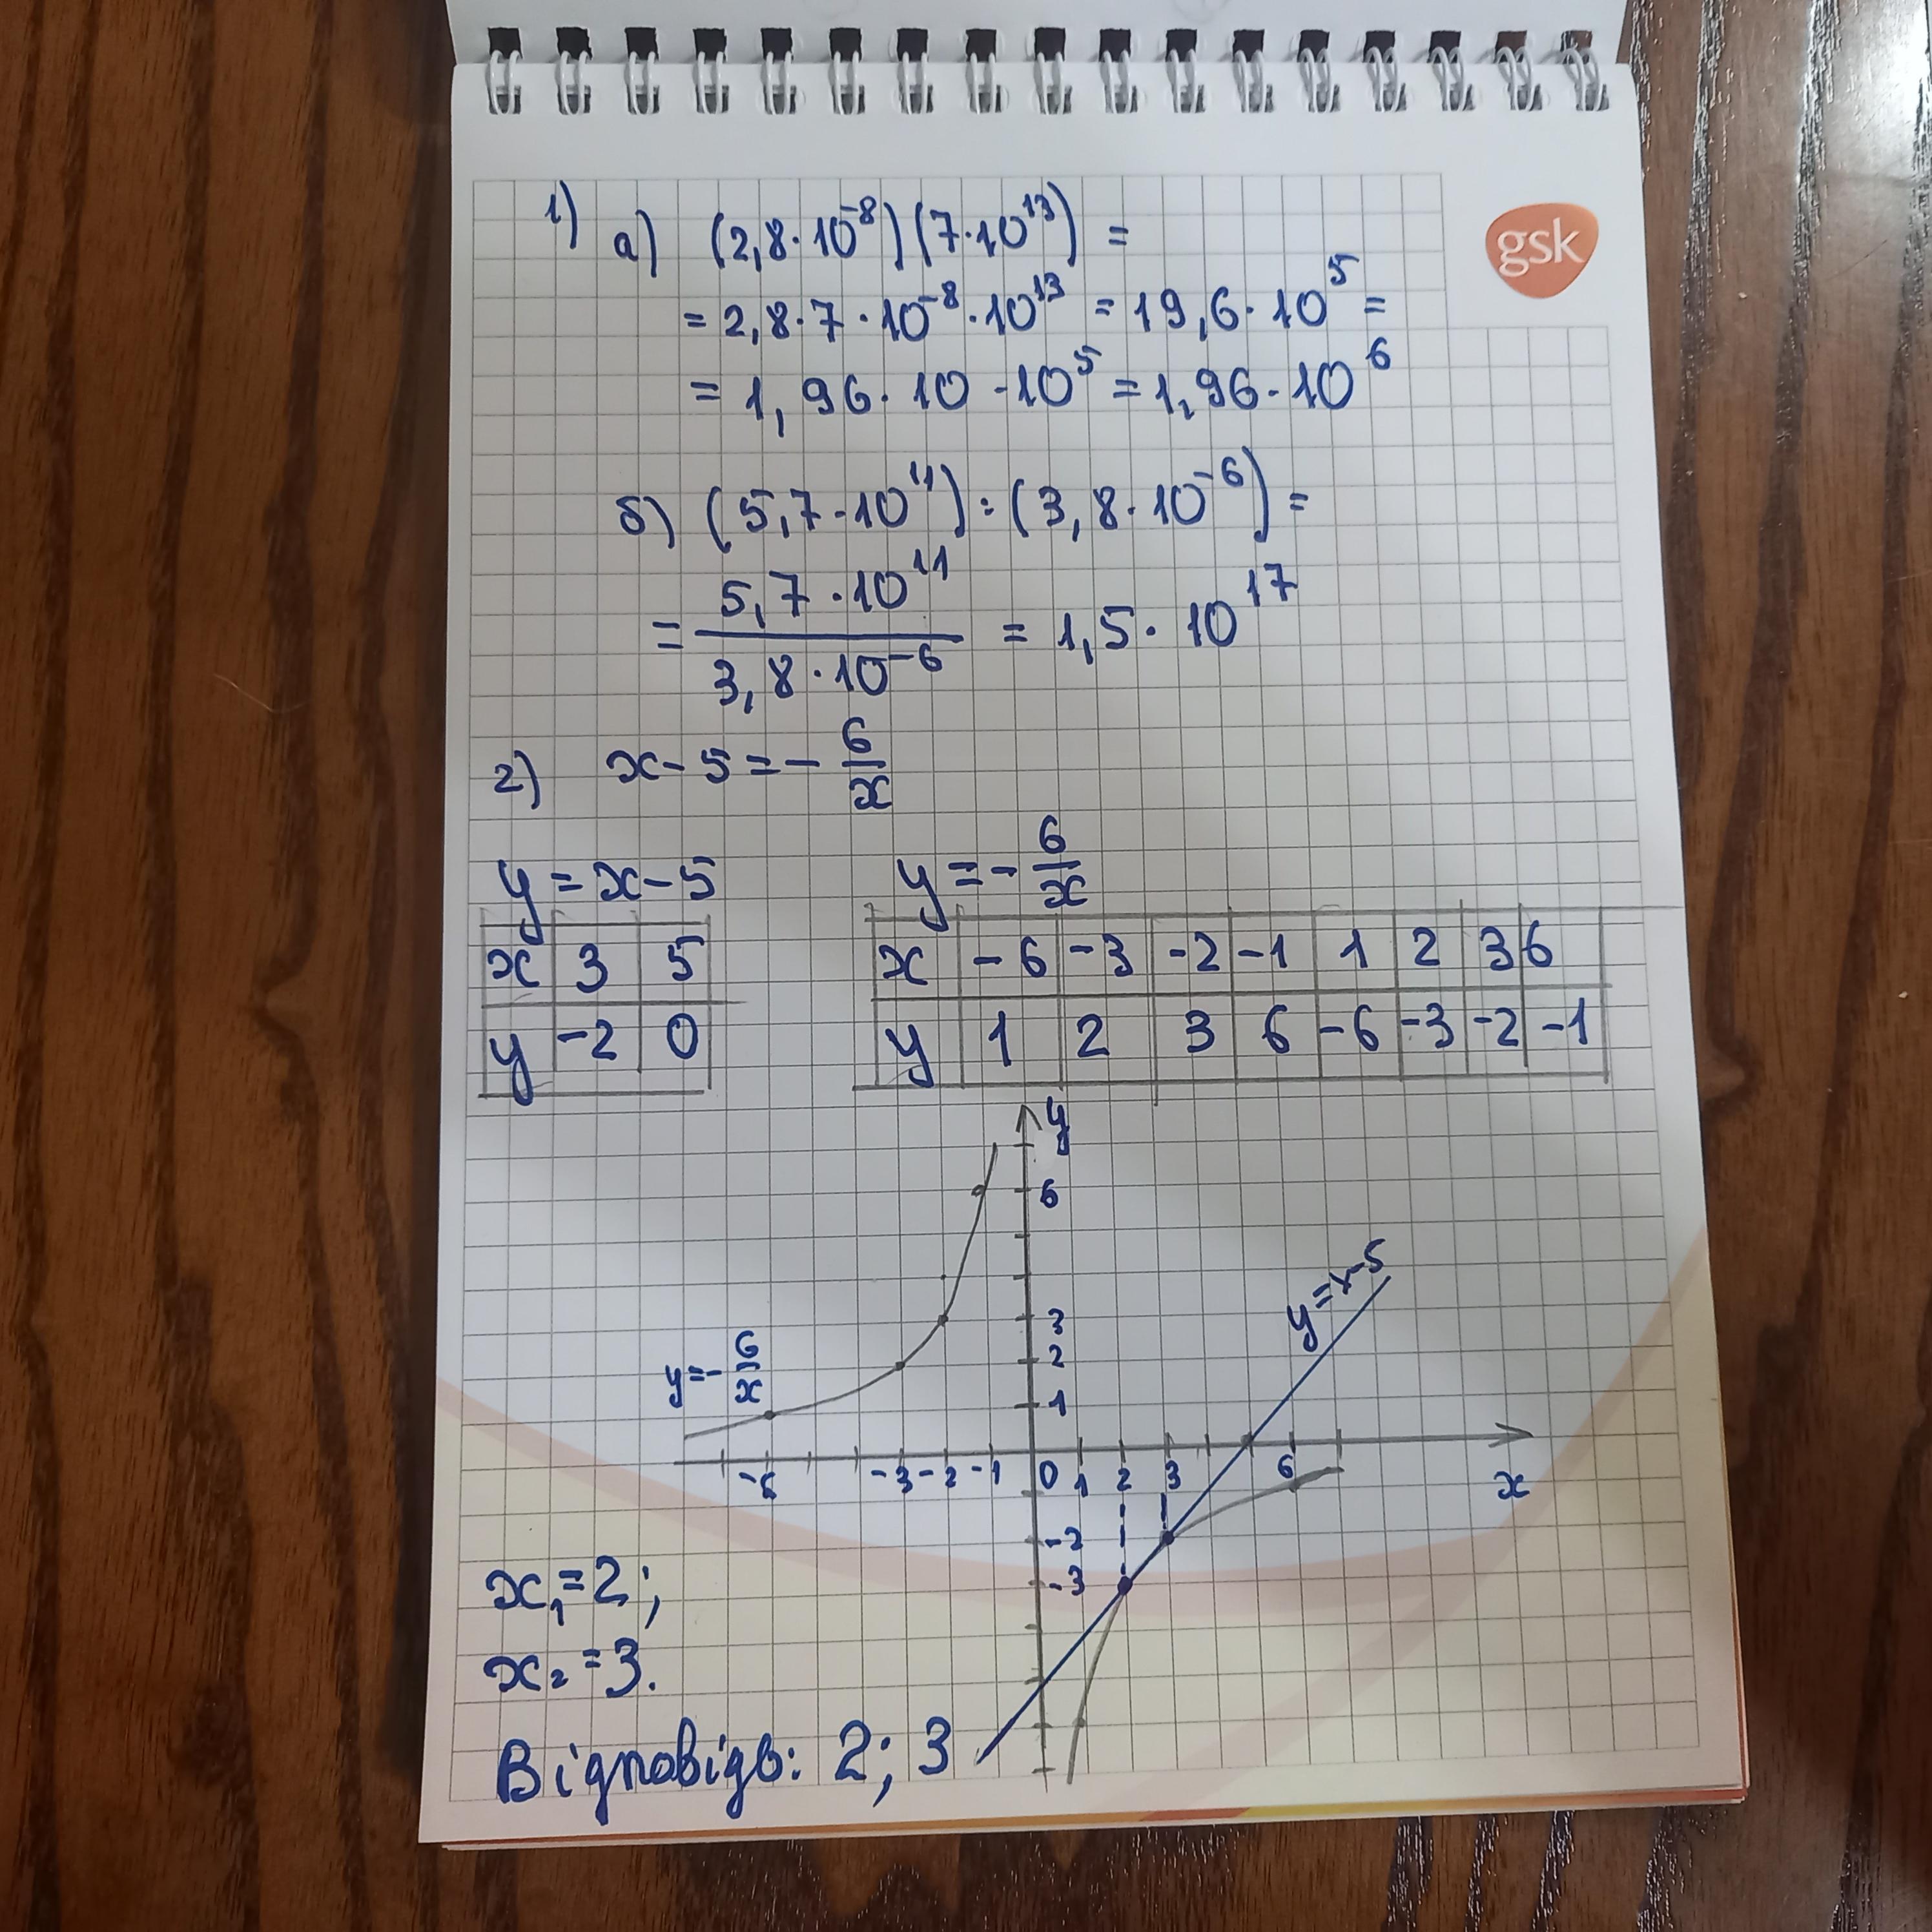 gsk
1) а) (2,8·10⁻⁸)(7·10¹³) =
= 2,8·7·10⁻⁸·10¹³ = 19,6·10⁵ =
= 1,96·10·10⁵ = 1,96·10⁶
б) (5,7·10¹¹):(3,8·10⁻⁶) =
= 5,7·10¹¹ / 3,8·10⁻⁶ = 1,5·10¹⁷
2) x-5=-6/x
y=x-5 y=-6/x
x 3 5 x -6 -3 -2 -1 1 2 3 6
y -2 0 y 1 2 3 6 -6 -3 -2 -1
y
6
y=x-5
3
2
y=-6/x
1
-6 -3 -2 -1 0 1 2 3 6 x
-2
-3
x₁=2;
x₂=3.
Відповідь: 2; 3